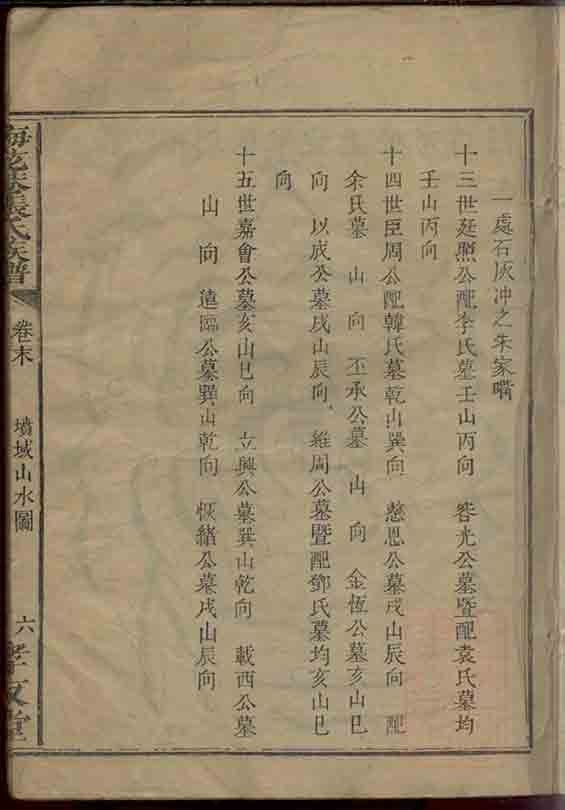 一處石灰冲之朱家嘴
十三世廷照公配李氏墓壬山丙向 容光公墓暨配袁氏墓均
壬山丙向
十四世臣周公配韓氏墓乾山巽向 慈恩公墓戌山辰向 配
余氏墓 山 向 丕承公墓 山 向 金恆公墓亥山巳
向 以成公墓戌山辰向 維周公墓暨配鄧氏墓均亥山巳
向
十五世嘉會公墓亥山巳向 立興公墓巽山乾向 載西公墓
山 向 遠臨公墓巽山乾向 恢緒公墓戌山辰向
張氏族譜 卷末 墳域山水圖 六 孝友堂